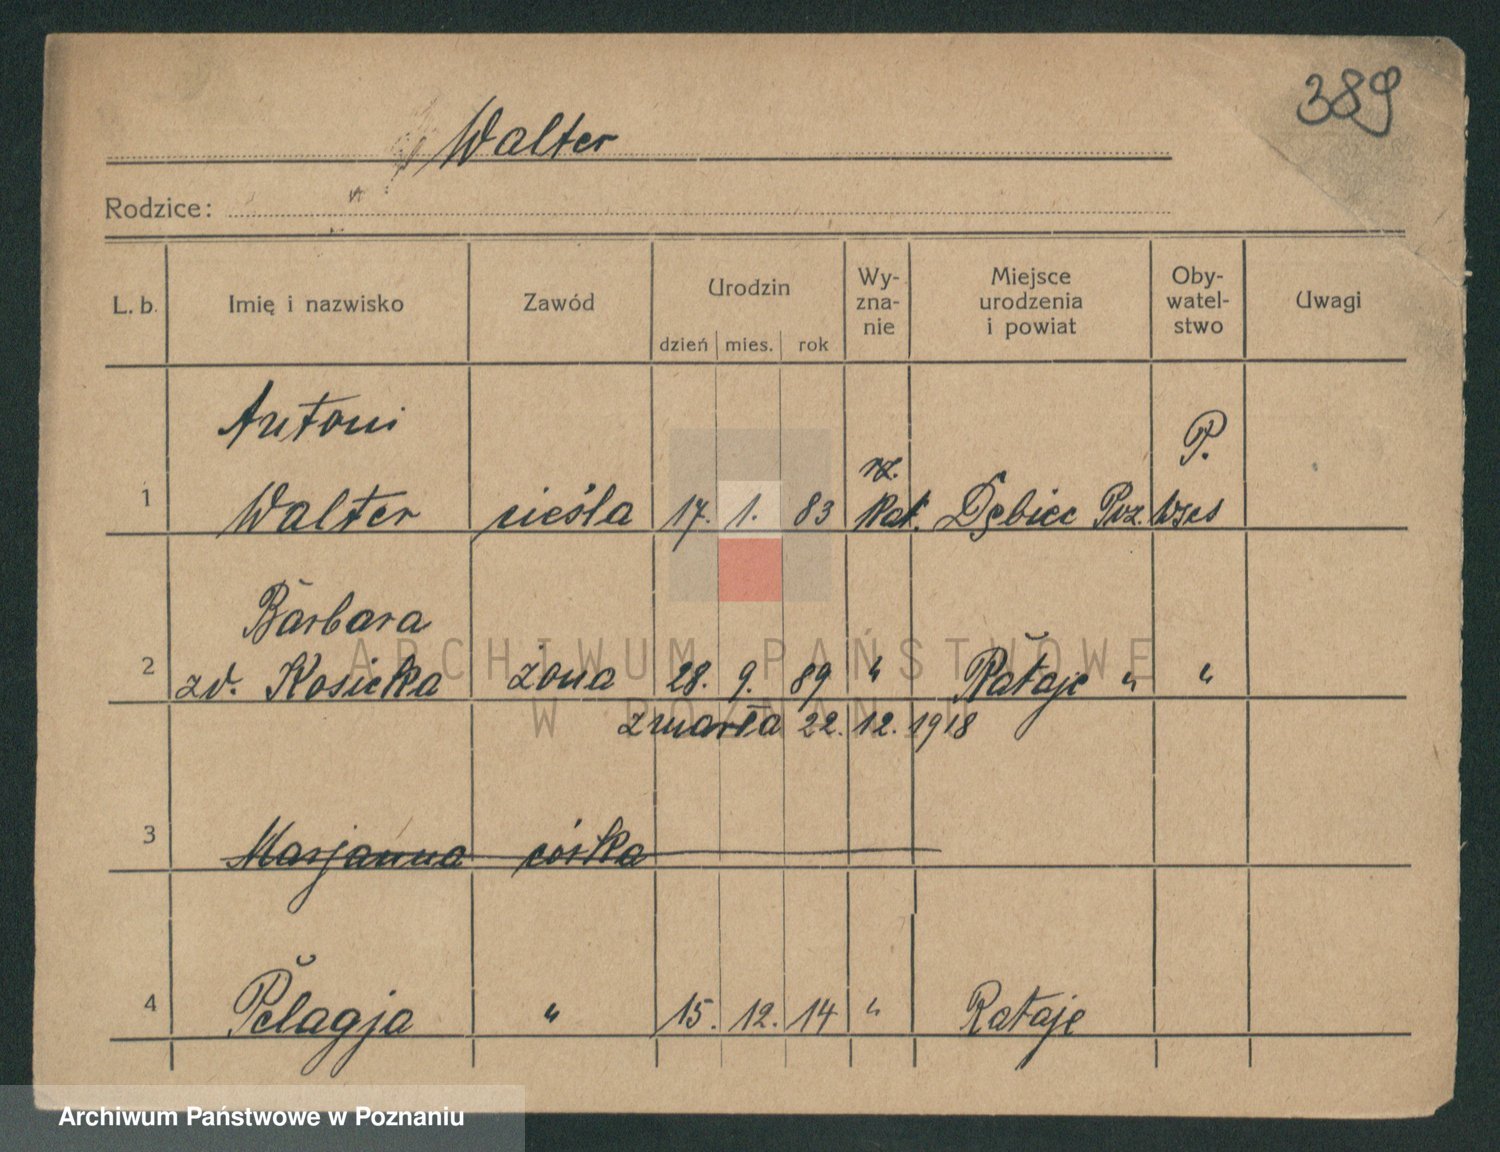 389
Walter
Rodzice:
L. b. Imię i nazwisko Zawód Urodzin Wy- Miejsce Oby- Uwagi
zna- urodzenia watel-
nie i powiat stwo
dzień mies. rok
Antoni P.
rz.
1 Walter cieśla 17. 1. 83 kat. Dębiec Poz. Wsch
Barbara
2 zd. Kosicka żona 28. 9. 89 " Rataje " "
zmarła 22. 12. 1918
3 Marjanna córka
4 Pelagja " 15. 12. 14 " Rataje
ARCHIWUM PAŃSTWOWE
W POZNANIU
Archiwum Państwowe w Poznaniu